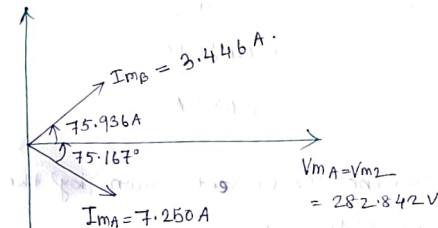 ImB = 3.446 A.
75.936A
75.167°
VmA=Vm2
= 282.842 V
ImA=7.250 A